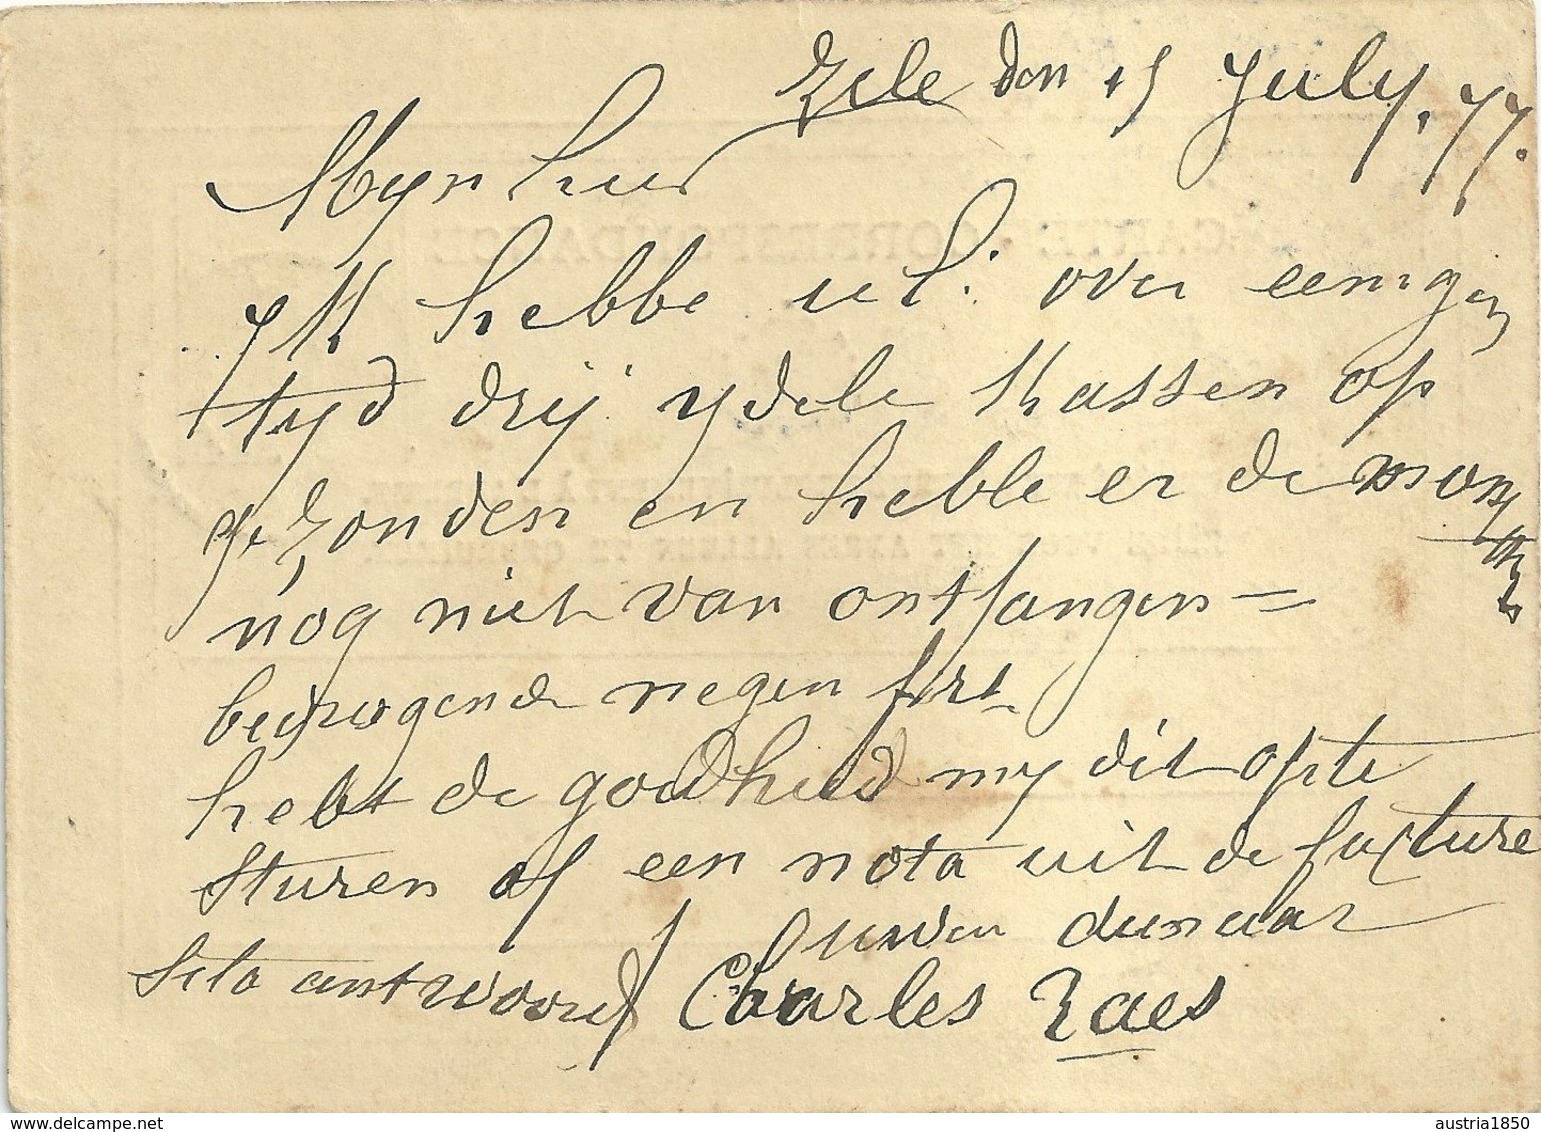 Zele den 15 July. 77.
Mynheer
Ik hebbe ul: over eenigen
tyd drij ydele Kassen op
gezonden en hebbe er de
nog niet van ontfangen =
bedragende negen frs
hebt de goedheid my dit op te
sturen of een nota uit de facture
Uwen dienaar
Cito antwoord Charles Raes
www.delcampe.net
austria1850